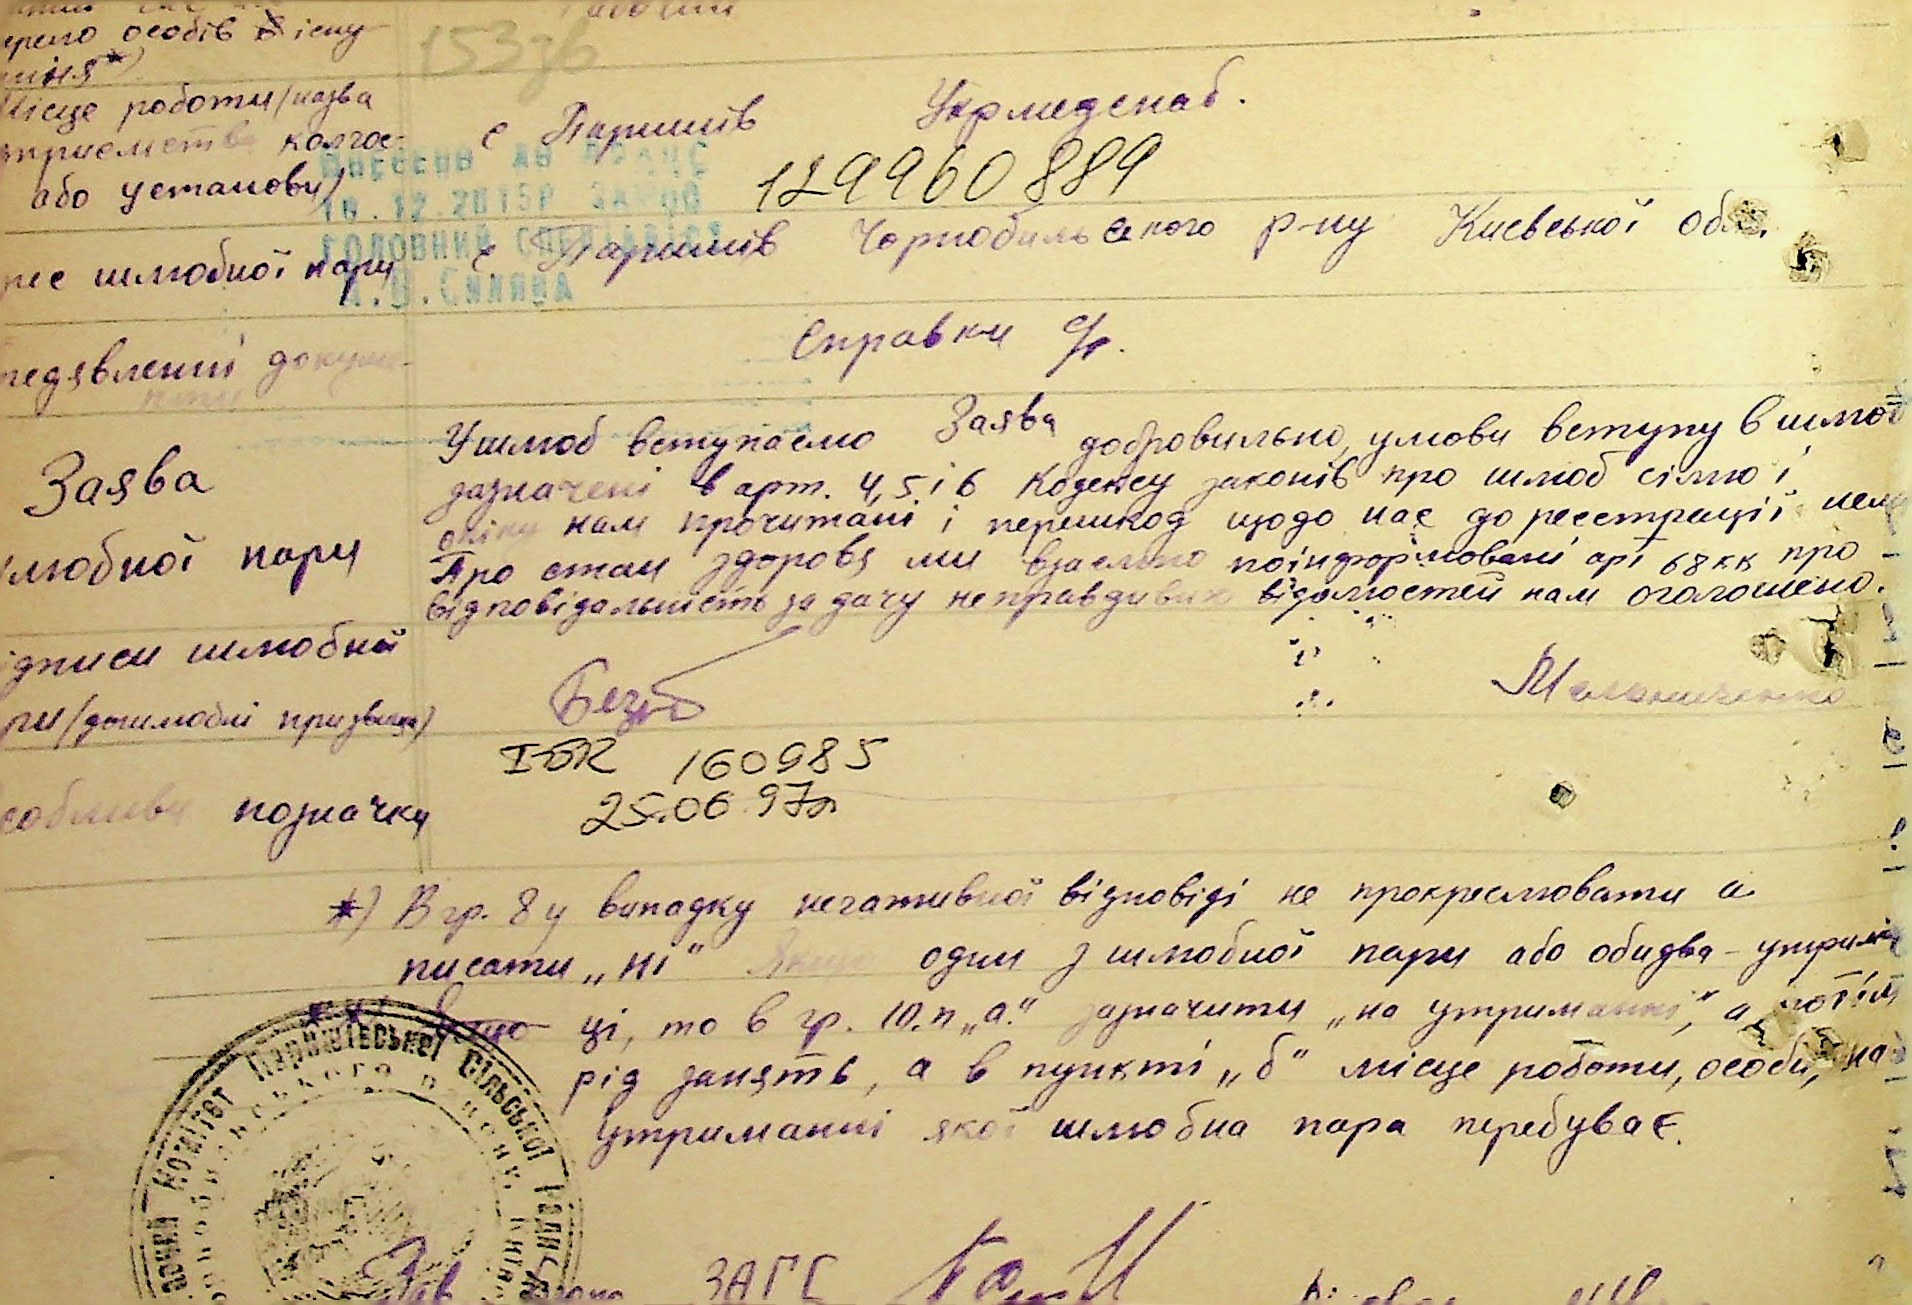 особів
153 зв
Місце роботи /назва
колгос-
або установи/
с Паришів
Укрмедснаб.
129960889
Внесено до
10.12.2015р
Головний спеціаліст
шлюбної пари
с Паришів Чорнобильського р-ну Києвської обл.
Справки с/р.
Заява
шлюбної пари
Заява
У шлюб вступаємо добровильно, умови вступу в шлюб
зазначені в арт. 4,5 і 6 Кодексу законів про шлюб сімю і
опіку нам прочитані і перешкод щодо нас до реєстрації нема
Про стан здоровя ми взаємно поінформовані арт 68 КК про
відповідальність за дачу неправдивих відомостей нам оголошено.
підписи шлюбної
пари /дошлюбні призвища/
Мельниченко
І-БК 160985
25.06.97р
особливи позначки
*) В гр. 8 у випадку негативної відповіді не прокреслювати а
писати „ні" Якщо один з шлюбної пари або обидва - утриман
ці, то в гр. 10. п „а." зазначити „на утриманні", а потім
рід занять, а в пункті „б" місце роботи, особи, на
утриманні якої шлюбна пара перебуває.
Комітет Паришівської Сільської Ради
Зав бюро ЗАГС